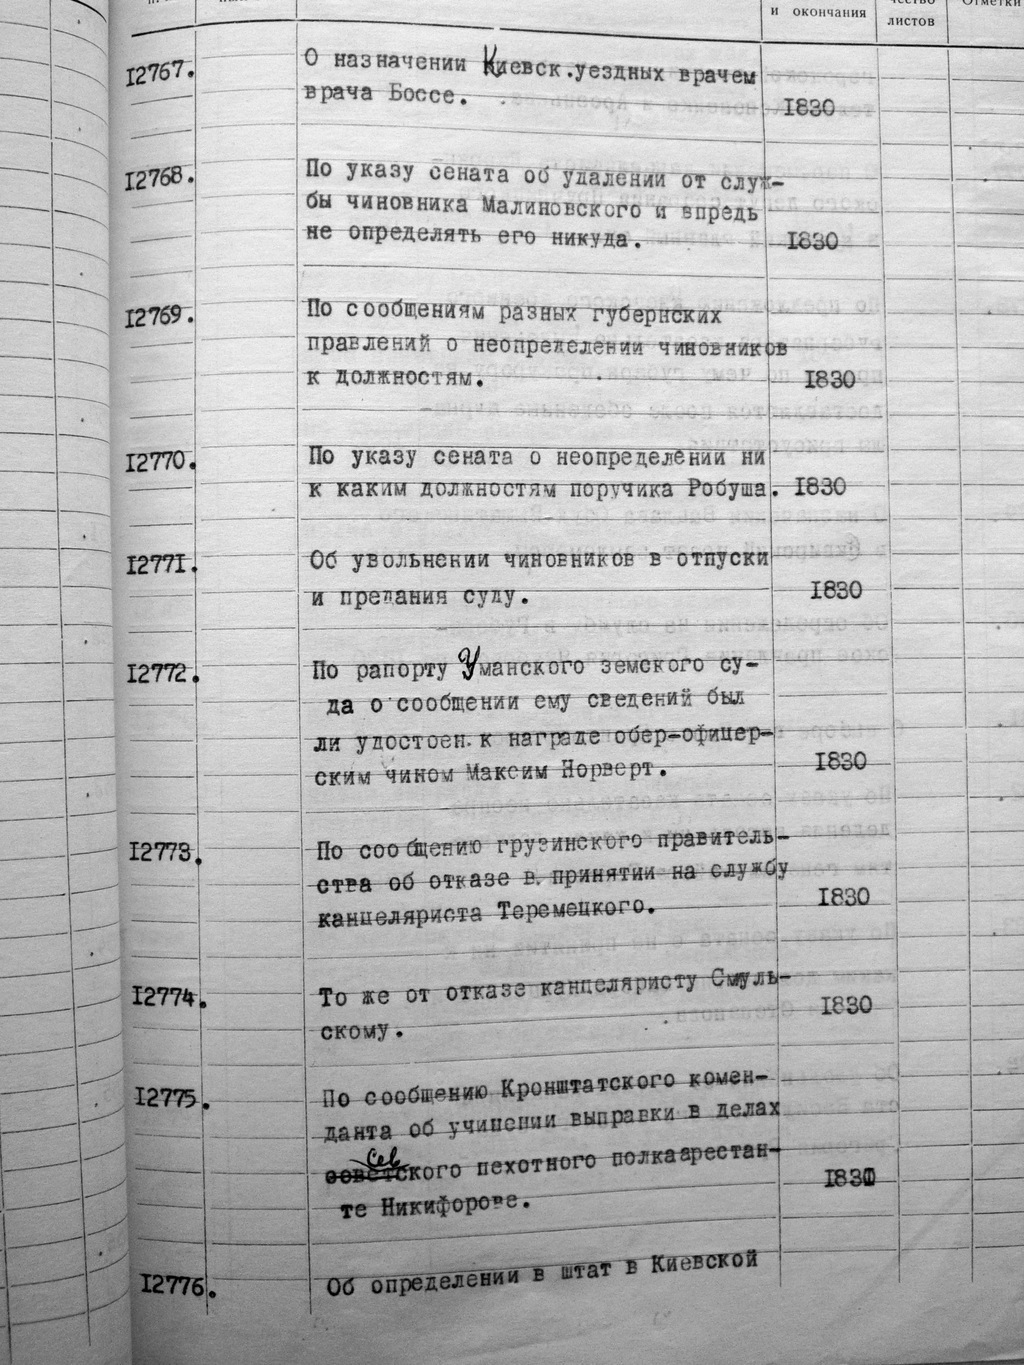 и окончания
листов
12767.
О назначении Киевск.уездных врачем
врача Боссе.
1830
12768.
По указу сената об удалении от служ-
бы чиновника Малиновского и впредь
не определять его никуда.
1830
12769.
По сообщениям разных губернских
правлений о неопределении чиновников
к должностям.
1830
12770.
По указу сената о неопределении ни
к каким должностям поручика Робуша.
1830
12771.
Об увольнении чиновников в отпуски
и предания суду.
1830
12772.
По рапорту Уманского земского су-
да о сообщении ему сведений был
ли удостоен к награде обер-офицер-
ским чином Максим Норверт.
1830
12773.
По сообщению грузинского правитель-
ства об отказе в принятии на службу
канцеляриста Теремецкого.
1830
12774.
То же от отказе канцеляристу Смуль-
скому.
1830
12775.
По сообщению Кронштатского комен-
данта об учинении выправки в делах
Сев
советского пехотного полкаарестан-
те Никифорове.
1830
12776.
Об определении в штат в Киевской